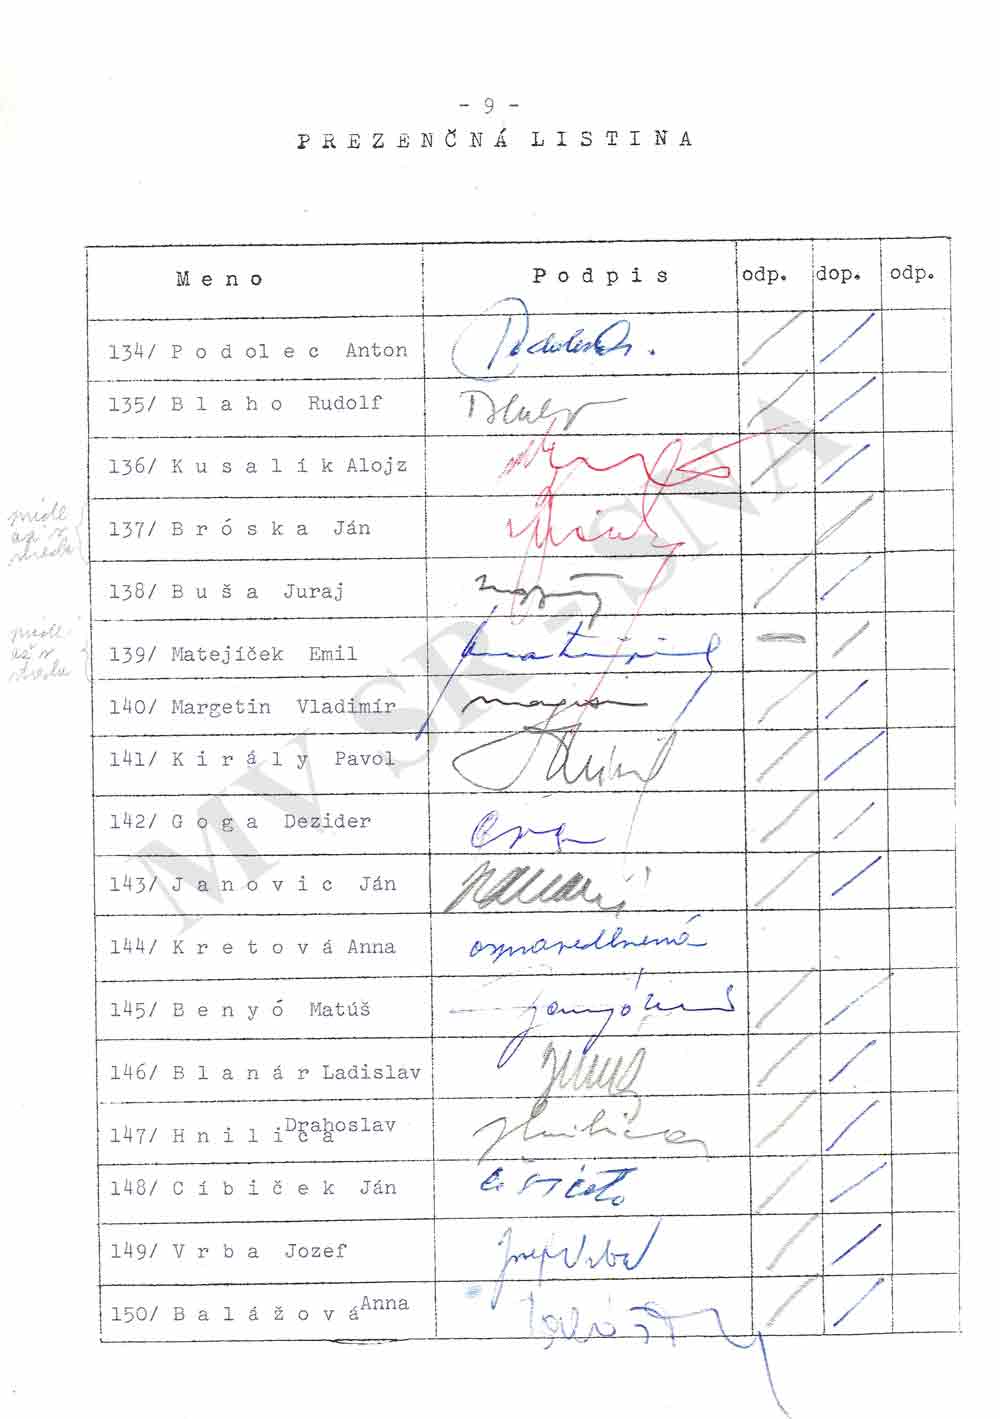 - 9 -
PREZENČNÁ LISTINA
Meno Podpis odp. dop. odp.
134/ Podolec Anton
135/ Blaho Rudolf
136/ Kusalík Alojz
137/ Bróska Ján
138/ Buša Juraj
139/ Matejíček Emil
140/ Margetin Vladimír
141/ Király Pavol
142/ Goga Dezider
143/ Janovic Ján
144/ Kretová Anna ospravedlnená
145/ Benyó Matúš
146/ Blanár Ladislav
147/ Hnilica Drahoslav
148/ Cíbiček Ján
149/ Vrba Jozef
150/ Balážová Anna
MV SR - SNA